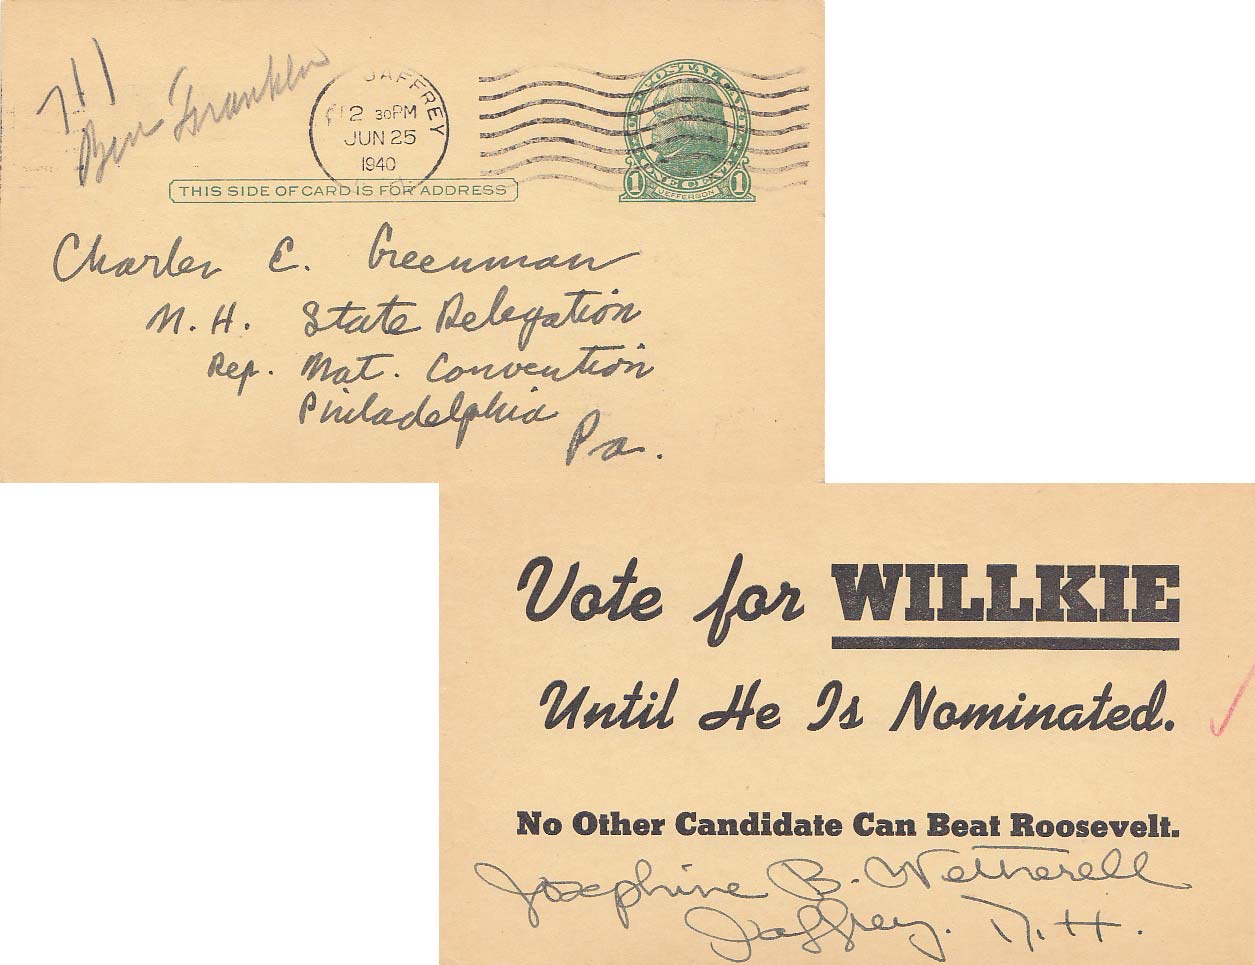 711
Ben Franklin
JAFFREY
12 30PM
JUN 25
1940
U.S. POSTAL CARD
ONE CENT
1 JEFFERSON 1
THIS SIDE OF CARD IS FOR ADDRESS
Charles E. Greenman
N. H. State Delegation
Rep. Nat. Convention
Philadelphia
Pa.
Vote for WILLKIE
Until He Is Nominated.
No Other Candidate Can Beat Roosevelt.
Josephine B. Wetherell
Jaffrey. N. H.